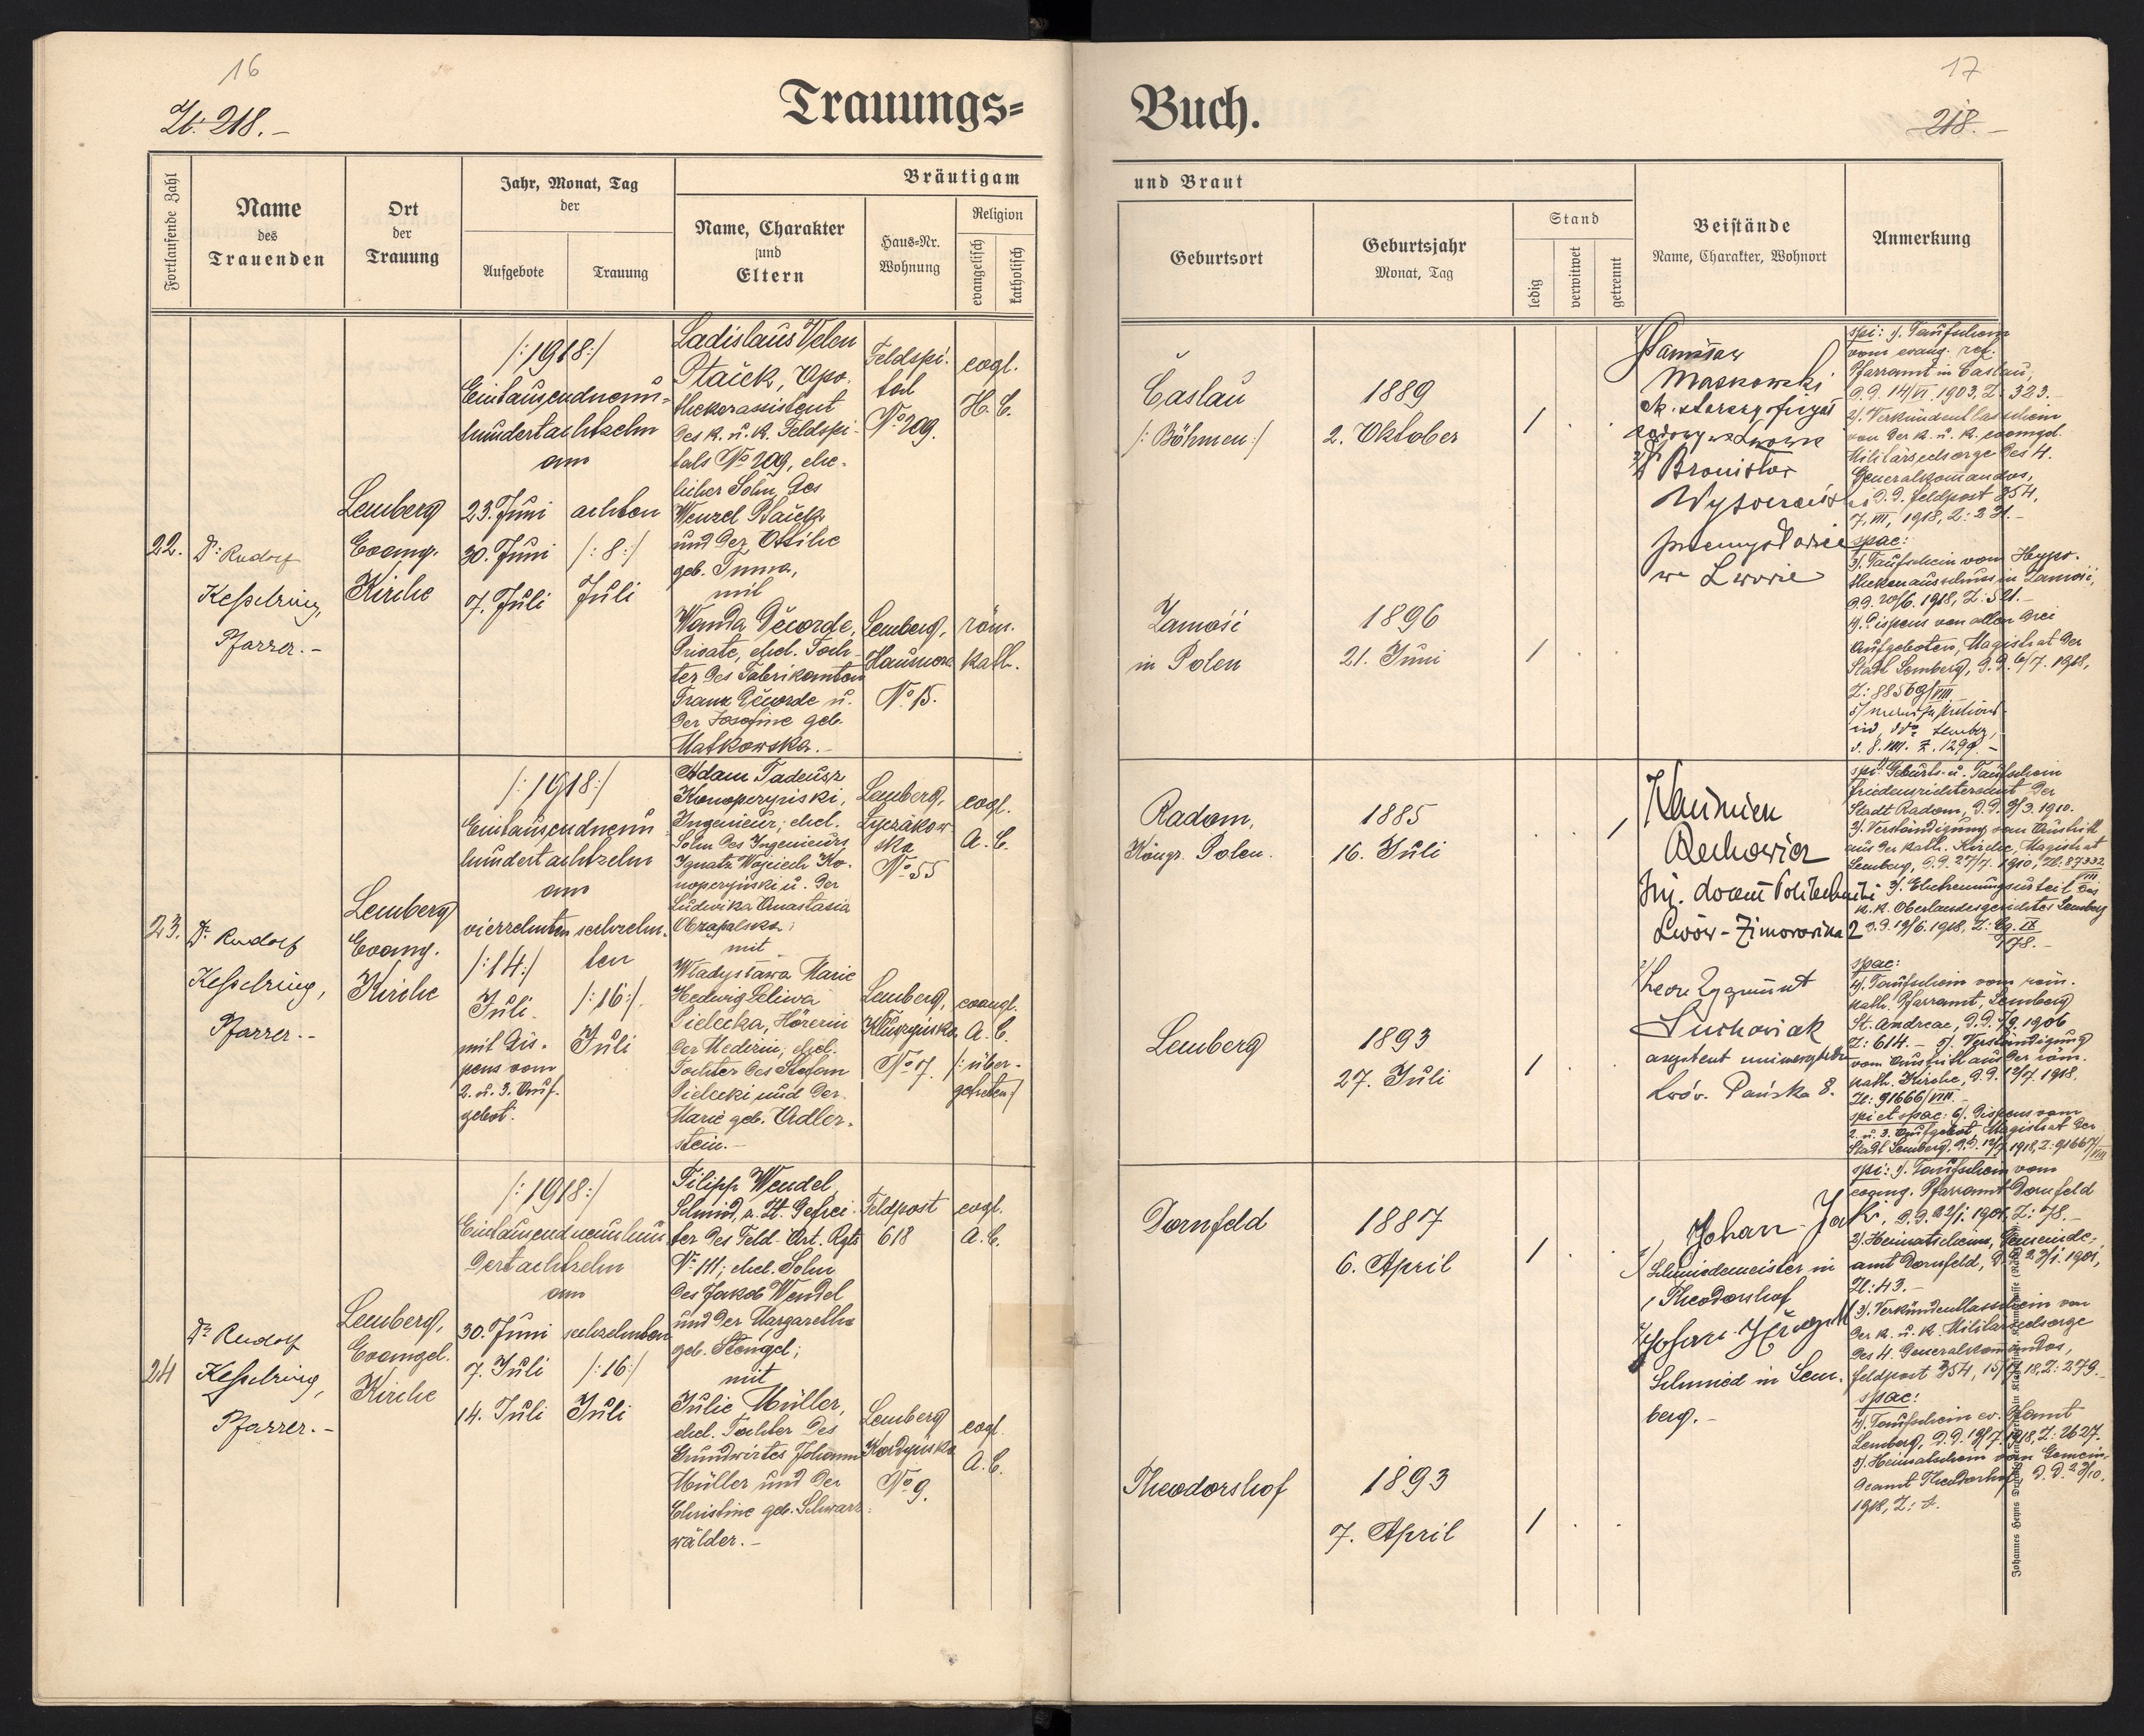 16
Zl: 218.-
Trauungs=
Fortlaufende Zahl
Name
des
Trauenden
Ort
der
Trauung
Jahr, Monat, Tag
der
Aufgebote
Trauung
Bräutigam
Name, Charakter
und
Eltern
Haus=Nr.
Wohnung
Religion
evangelisch
katholisch
22.
Dr. Rudolf
Kesselring,
Pfarrer.-
Lemberg
Evang.
Kirche
/:1918:/
Eintausendneun=
hundertachtzehn
am
23. Juni
30. Juni
7. Juli
achten
/:8:/
Juli
Ladislaus Velen
Ptaček, Apo-
thekerassistent
des k. u. k. Feldspi-
tals No 209, ehe-
licher Sohn des
Wenzel Ptaček
und der Ottilie
geb. Tuma,
mit
Wanda Décorde,
Private, ehel. Toch-
ter des Fabrikanten
Franz Décorde u.
der Josefine geb.
Matkowska.-
Feldspi-
tal
No 209.
Lemberg,
No 15.
evgl.
H. C.
röm.
kath.
23.
Dr. Rudolf
Kesselring,
Pfarrer.-
Lemberg
Evang.
Kirche
/:1918:/
Eintausendneun
hundertachtzehn
am
vierzehnten
/:14:/
Juli.
mit Dis-
pens vom
2. u. 3. Auf-
gebot.
sechzehn-
ten
/:16:/
Juli
Adam Tadeusz
Konopczyński,
Ingenieur; ehel.
Sohn des Ingenieurs
Ignatz Wojciech Ko-
nopczyński u. der
Ludwika Anastasia
mit
Władysława Marie
Hedwig Leliwa
Pielecka, Hörerin
der Medizin; ehel.
Tochter des Stefan
Pielecki und der
Marie geb. Adler-
stein.-
Lemberg,
Łyczakow
ska
No 55
Lemberg,
No 7.
evgl.
A. C.
evangl.
A. C.
/:über-
getreten:/
24
Dr. Rudolf
Kesselring,
Pfarrer.-
Lemberg,
Evangel.
Kirche
/:1918:/
Eintausendneunhun
dertachtzehn
am
30. Juni
7. Juli
14. Juli
sechzehnten
/:16:/
Juli
Filipp Wendel
Schmid, z. Zt. Gefrei-
ter des Feld-Art. Rgts
No 111; ehel. Sohn
des Jakob Wendel
und der Margaretha
geb. Stengel;
mit
Julie Müller,
ehel. Tochter des
Grundwirtes Johann
Müller und der
Christine geb. Schwarz-
wälder.-
Feldpost
618
Lemberg
No 9.
evgl.
A. C.
evgl.
A. C.
17
218.-
Buch.
und Braut
Geburtsort
Geburtsjahr
Monat, Tag
Stand
ledig
verwitwet
getrennt
Beistände
Name, Charakter, Wohnort
Anmerkung
Časlau
/:Böhmen:/
1889
2. Oktober
1
Zamość
in Polen
1896
21. Juni
1
Stanisław
Maskowski
2/ Bronisław
we Lwowie
spi: 1/. Taufschein
vom evang. ref.
Pfarramt in Caslau,
d.d. 14/VI. 1903, Z: 323.-
2/. Verkündentlasschein
von der k. u. k. evangel.
Militärseelsorge des 4.
Generalkomandos,
d.d. Feldpost 354,
7, VII, 1918, Z: 231.-
spac:
3/. Taufschein vom Hypo-
thekenausschuss in Zamość,
d.d. 20/6. 1918, Z: 521.-
4/. Dispens von allen drei
Aufgeboten, Magistrat der
Stadt Lemberg, d.d. 6/7. 1918,
Z: 88569/VIII
Radom,
Köngr. Polen.
1885
16. Juli
1
Lemberg
1893
27. Juli
1
Lwów-Zimorowicza 2
Lwów. Pańska 8.
spi: 1/ Geburts- u. Taufschein
Friedensrichteramt der
Stadt Radom, d.d. 9/3. 1910.
2/. Verständigung vom Austritt
aus der kath. Kirche, Magistrat
Lemberg, d.d. 27/7. 1910, Zl. 87332
VIII
3/. Ehetrennungsurteil des
k. k. Oberlandesgerichtes Lemberg
spac:
4/. Taufschein vom röm.
kath. Pfarramt, Lemberg
St. Andreae, 1906
Z: 614.- 5/. Verständigung
vom Austritt aus der röm.
kath. Kirche, d.d. 12/7. 1918,
Zl: 91666/VIII.-
spi et spac: 6/. Dispens vom
2. u. 3. Aufgebot, Magistrat der
Stadt Lemberg, d.d. 12/7 1918, Z: 91667/VIII
Dornfeld
1887
6. April
1
Theodorshof
1893
7. April
1
Johan Jaki.
1/ Schmiedemeister in
Theodorshof
2/ Johan
Schmied in Lem-
berg.-
spi: 1/. Taufschein vom
evang. Pfarramt Dornfeld
d.d. 22/1. 1901, Z: 78.-
2/. Heimatschein, Gemeinde-
amt Dornfeld, d.d. 23/1. 1901,
Zl: 43.-
3/. Verkündentlasschein von
der k. u. k. Militärseelsorge
des 4. Generalkomandos,
Feldpost 354, 15/7. 18, Z: 279.-
spac:
4/. Taufschein ev. Pfarramt
Lemberg, d.d. 1918, Z: 2627.
5/. Heimatschein vom Gemein-
deamt Theodorshof, d.d.
1918, Z: